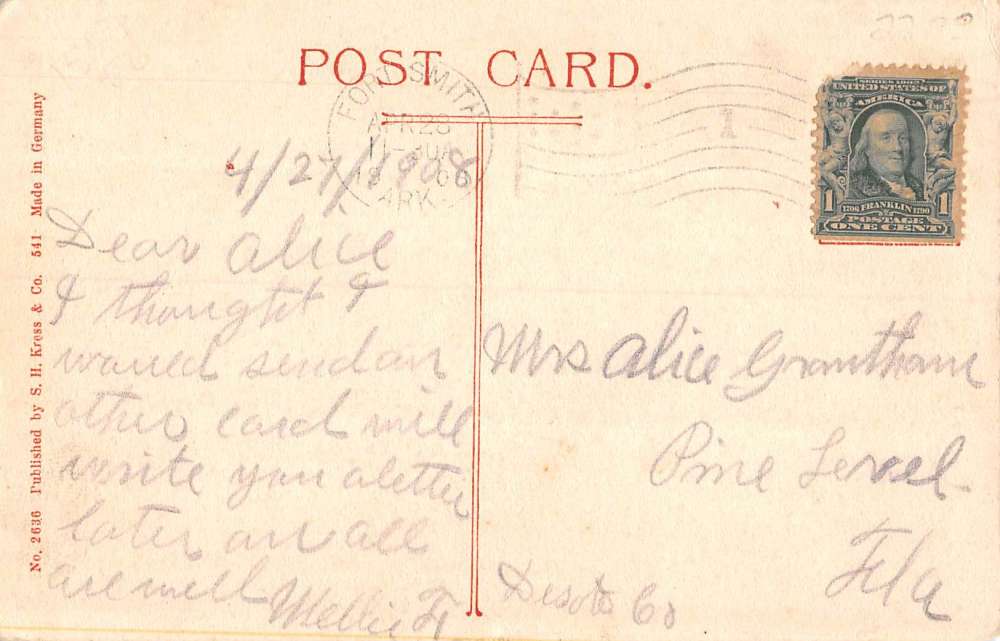 POST CARD.
FORT SMITH
APR 28
ARK.
SERIES 1902
UNITED STATES OF
AMERICA
1 1
1706 FRANKLIN 1790
POSTAGE
ONE CENT
No. 2636 Published by S. H. Kress & Co. 541 Made in Germany
4/27/1908
Dear Alice
I thought I
would send an
other card will
write you a letter
later on all
are well
Mellie F
Mrs Alice Grantham
Pine Level
Fla
Desoto Co